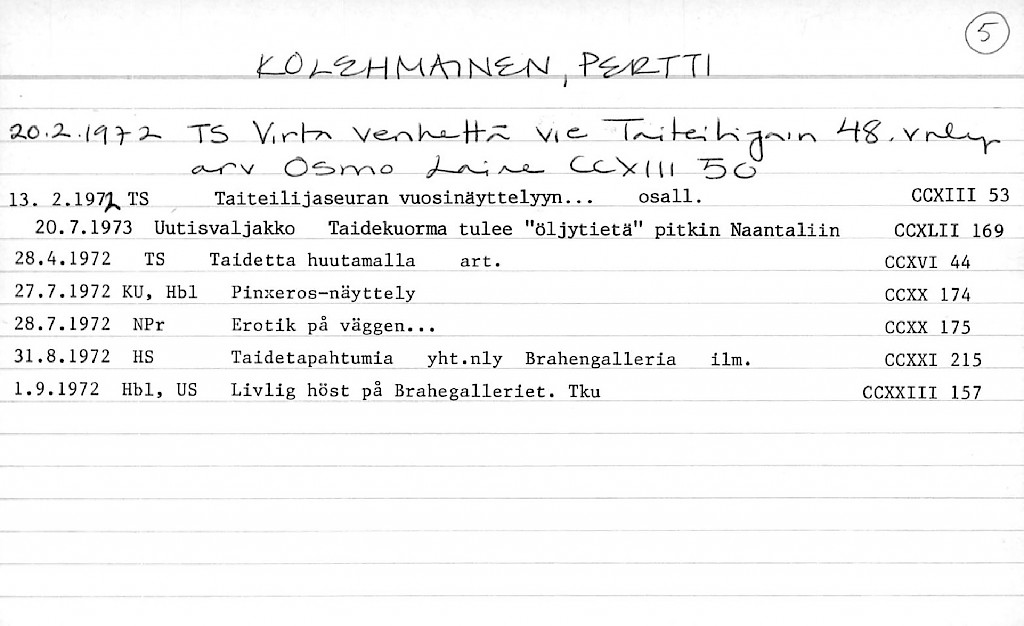 5
KOLEHMAINEN, PERTTI
20.2.1972 TS Virta venhettä vie Taiteilijain 48. vnly
arv Osmo Laine CCXIII 50
13. 2.1972 TS Taiteilijaseuran vuosinäyttelyyn... osall. CCXIII 53
20.7.1973 Uutisvaljakko Taidekuorma tulee "öljytietä" pitkin Naantaliin CCXLII 169
28.4.1972 TS Taidetta huutamalla art. CCXVI 44
27.7.1972 KU, Hbl Pinxeros-näyttely CCXX 174
28.7.1972 NPr Erotik på väggen... CCXX 175
31.8.1972 HS Taidetapahtumia yht.nly Brahengalleria ilm. CCXXI 215
1.9.1972 Hbl, US Livlig höst på Brahegalleriet. Tku CCXXIII 157